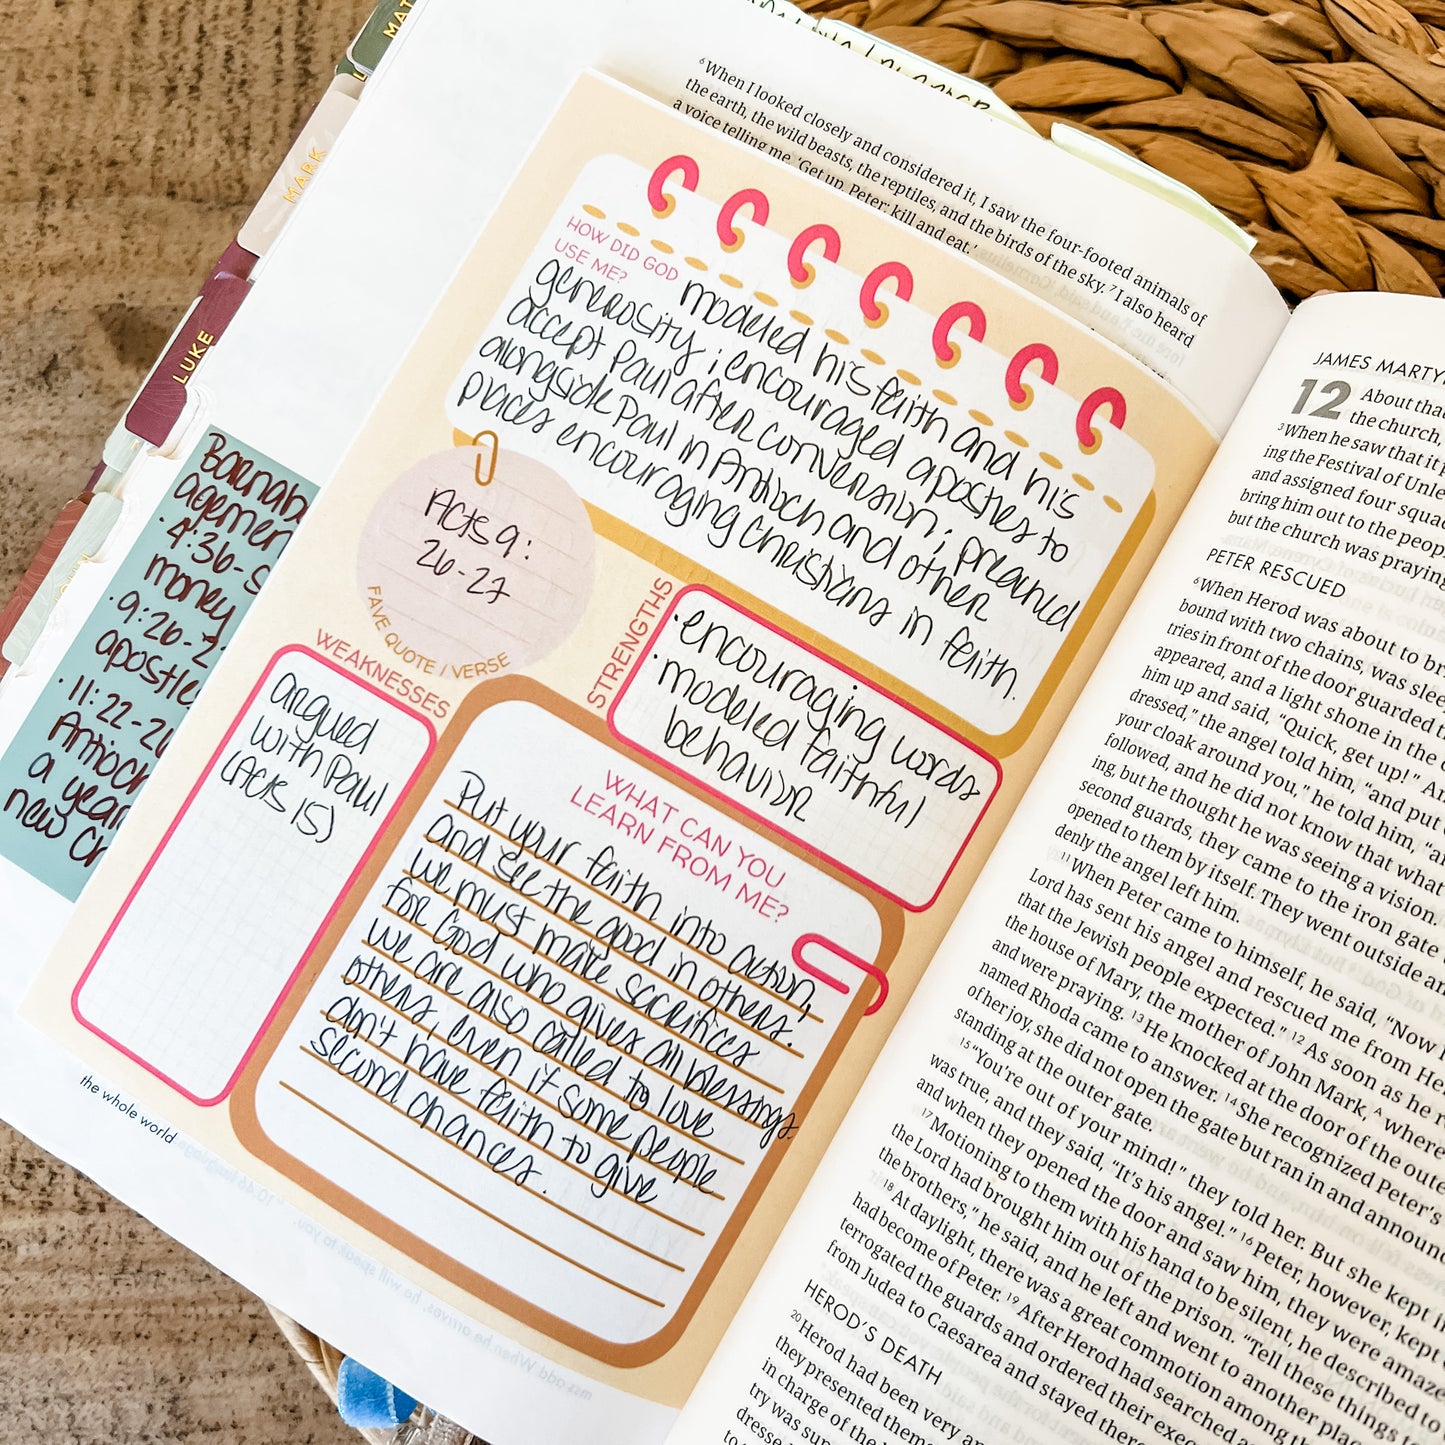 MAT
MARK
LUKE
⁶ When I looked closely and considered it, I saw the four-footed animals of
the earth, the wild beasts, the reptiles, and the birds of the sky. ⁷ I also heard
a voice telling me, 'Get up, Peter; kill and eat.'
HOW DID GOD
USE ME?
modeled his faith and his
generosity; encouraged apostles to
accept Paul after conversion; preached
alongside Paul in Antioch and other
places encouraging christians in faith.
Acts 9:
26-27
FAVE QUOTE / VERSE
STRENGTHS
· encouraging words
· modeled faithful
behavior
WEAKNESSES
argued
with Paul
(Acts 15)
WHAT CAN YOU
LEARN FROM ME?
Put your faith into action,
and see the good in others.
we must make sacrifices
for God who gives all blessings.
we are also called to love
others, even if some people
don't have faith to give
second chances.
· 4:36-
money
· 9:26-2
apostle
· 11:22-26
Antioch
a year
new
the whole world
JAMES MARTY
12 About that
the church,
³ When he saw that it p
ing the Festival of Unle
and assigned four squa
bring him out to the peop
but the church was praying
PETER RESCUED
⁶ When Herod was about to br
bound with two chains, was slee
tries in front of the door guarded t
appeared, and a light shone in the c
him up and said, "Quick, get up!" An
dressed," the angel told him, "and put o
your cloak around you," he told him, "a
followed, and he did not know that what
ing, but he thought he was seeing a vision.
second guards, they came to the iron gate
opened to them by itself. They went outside an
denly the angel left him.
¹¹ When Peter came to himself, he said, "Now I
Lord has sent his angel and rescued me from He
that the Jewish people expected." ¹² As soon as he r
the house of Mary, the mother of John Mark, ᴬ where
and were praying. ¹³ He knocked at the door of the oute
named Rhoda came to answer. ¹⁴ She recognized Peter's
of her joy, she did not open the gate but ran in and announ
standing at the outer gate.
¹⁵ "You're out of your mind!" they told her. But she kept in
was true, and they said, "It's his angel." ¹⁶ Peter, however, kept
and when they opened the door and saw him, they were amaze
¹⁷ Motioning to them with his hand to be silent, he described to
the Lord had brought him out of the prison. "Tell these things to
the brothers," he said, and he left and went to another place
¹⁸ At daylight, there was a great commotion among th
had become of Peter. ¹⁹ After Herod had searched a
terrogated the guards and ordered their exec
from Judea to Caesarea and stayed there
HEROD'S DEATH
²⁰ Herod had been very an
they presented theme
in charge of the
try was sup
dresse
to